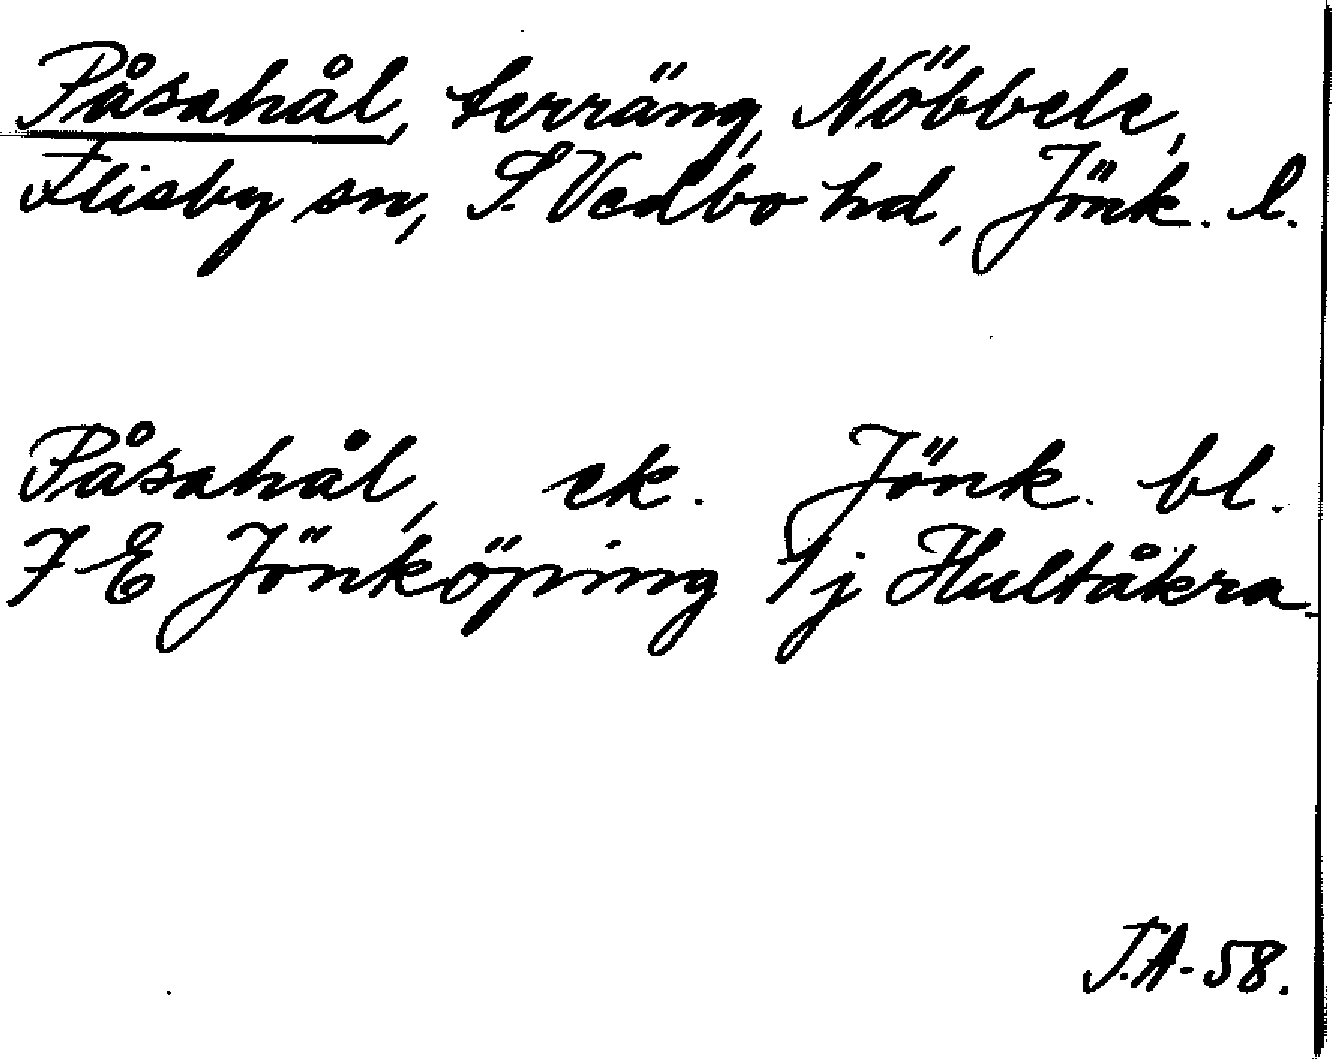 Påsahål, terräng, Nöbbele,
Flisby sn, S. Vedbo hd, Jönk. l.
Påsahål, ek. Jönk. bl.
7 E Jönköping 1j Hultåkra
J.A-58.